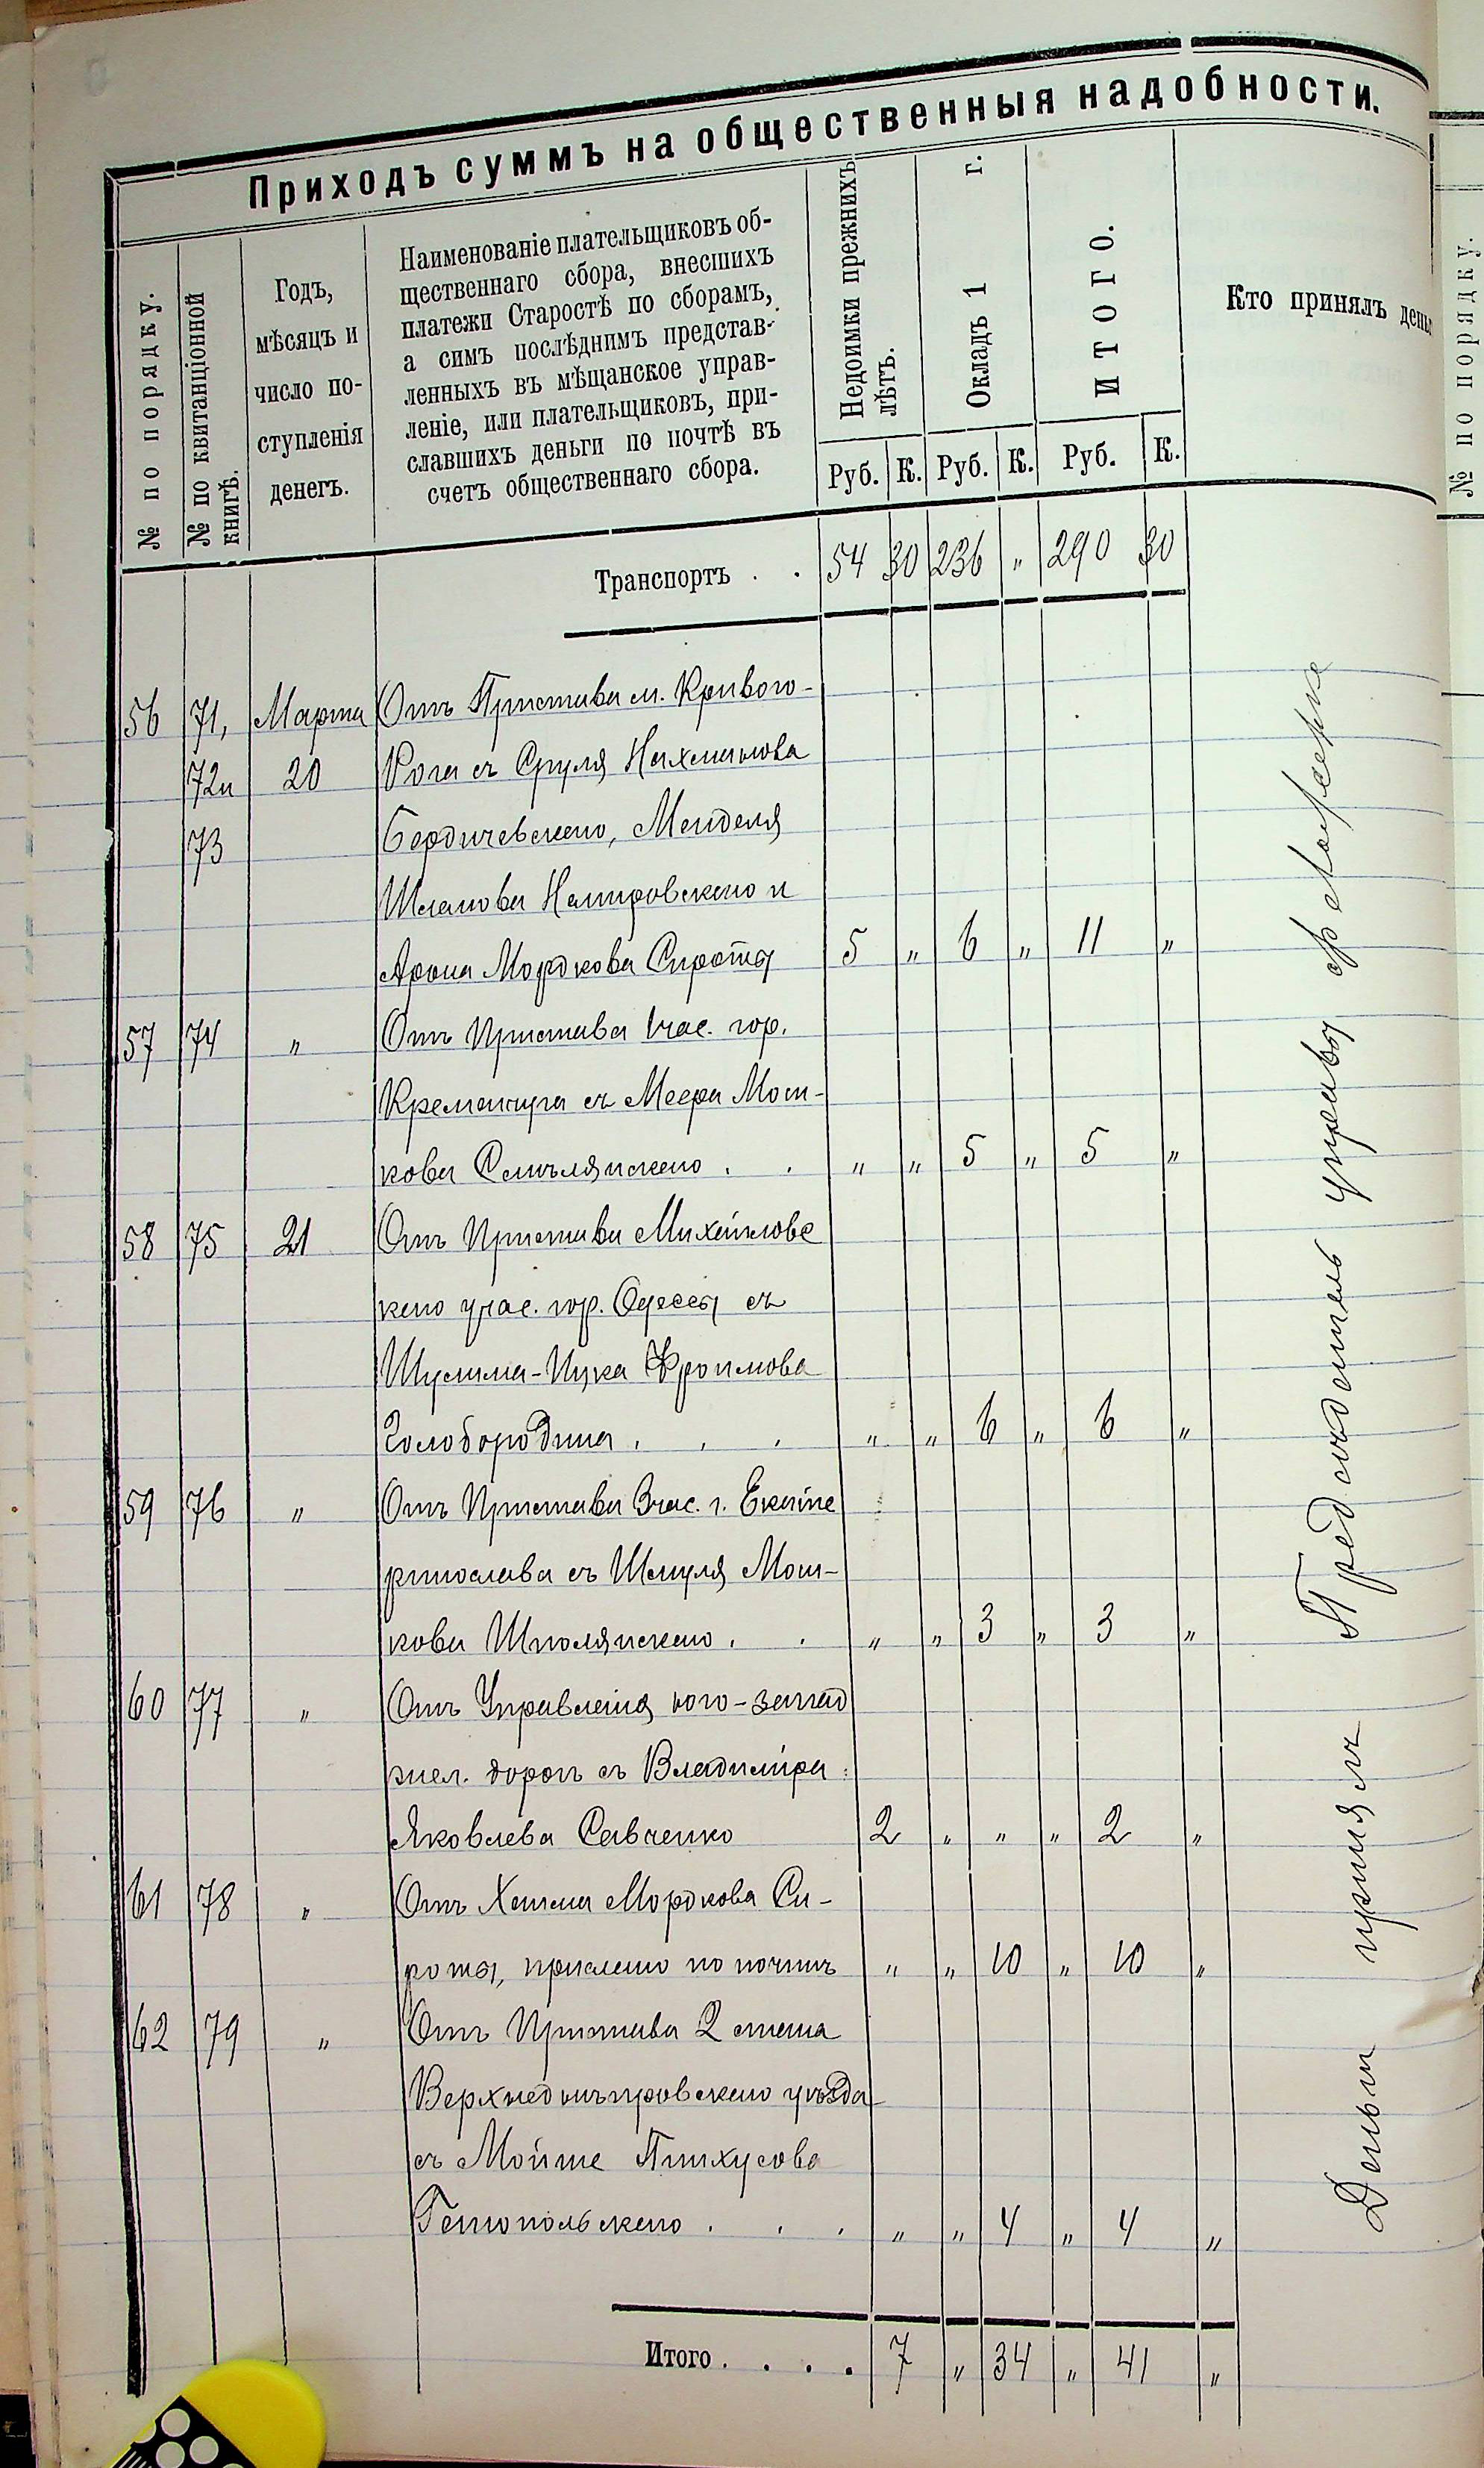 Приходъ суммъ на общественныя надобности.
№ по порядку.
№ по квитанціонной
книгѣ.
Годъ,
мѣсяцъ и
число по-
ступленія
денегъ.
Наименованіе плательщиковъ об-
щественнаго сбора, внесшихъ
платежи Старостѣ по сборамъ,
а симъ послѣднимъ представ-
ленныхъ въ мѣщанское управ-
леніе, или плательщиковъ, при-
славшихъ деньги по почтѣ въ
счетъ общественнаго сбора.
Недоимки прежнихъ
лѣтъ.
Окладъ 1 г.
ИТОГО.
Кто принялъ день
Руб. К. Руб. К. Руб. К.
Транспортъ . . 54 30 236 " 290 30
56 71, Марта Отъ Пристава м. Кривого-
72 и 20 Рога съ Сруля Нахманова
73 Бердичевскаго, Менделя
Шлемова Немировскаго и
Арона Мордкова Сироты 5 " 6 " 11 "
57 74 " Отъ Пристава 1 час. гор.
Кременчуга съ Меера Мош-
кова Смѣлянскаго . . " " 5 " 5 "
58 75 21 Отъ Пристава Михайловс
каго учас. гор. Одессы съ
Шулима-Ицка Фроимова
Голобородина . . . " " 6 " 6 "
59 76 " Отъ Пристава 3 час. г. Екате
ринослава съ Шмуля Мош-
кова Шполянскаго . . " " 3 " 3 "
60 77 " Отъ Управленія юго-запад
жел. дорогъ съ Владиміра
Яковлева Савченко 2 " " " 2 "
61 78 " Отъ Хаима Мордкова Си-
роты, прислано по почтѣ " " 10 " 10 "
62 79 " Отъ Пристава 2 стана
Верхнеднѣпровскаго уѣзда
съ Мойше Пинхусова
Тенопольскаго . . . " " 4 " 4 "
Итого . . . . 7 " 34 " 41 "
Деньги принялъ Предсѣдатель управы
№ по порядку.